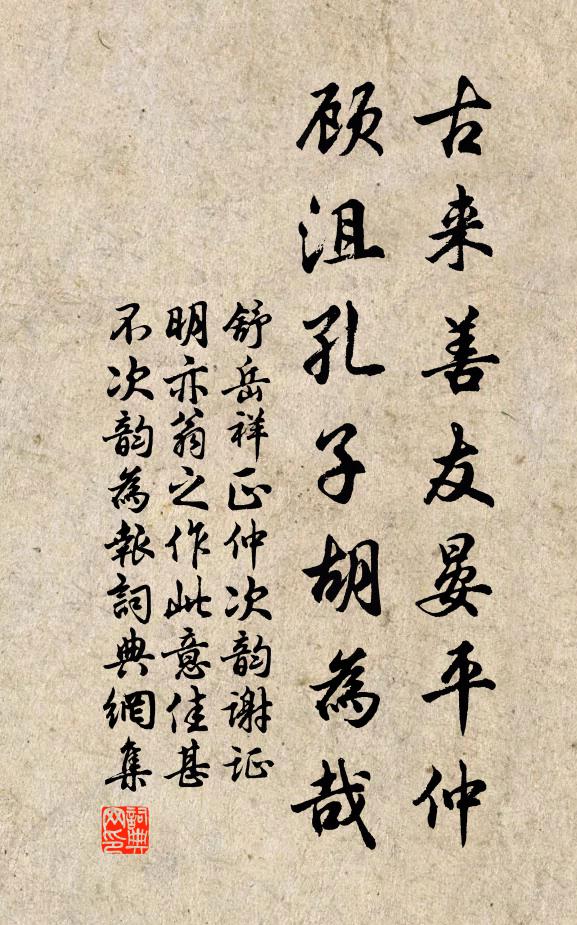 古来善友晏平仲
顾沮孔子胡為哉
舒岳祥正仲次韵谢证
明亦翁之作此意佳甚
不次韵為報詞典網集
詞典
网印